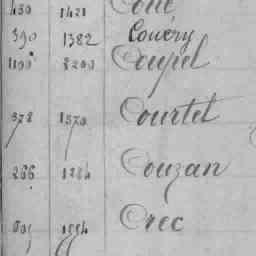 430 1421 Coue
390 1382 Couëry
1100 2200 Coupel
378 1370 Courtet
266 1284 Couzan
Créc